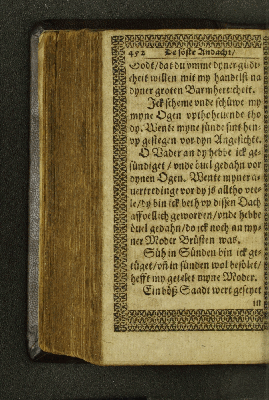 452 De söste Andacht/
Godt/ dat du vmme dyner güdt-
cheit willen mit my handelst na
dyner groten Barmherticheit.
Jck scheme vnde schüwe my
myne Ogen vpthoheuende tho
dy. Wente myne sünde sint hen-
vp gestegen vor dyn Angesichte.
O Vader an dy hebbe ick ge-
sündiget / vnde öuel gedahn vor
dynen Ogen. Wente myner a-
uertredinge vor dy js altho ve-
le/ dy bin ick beth vp dissen Dach
affuellich geworden/ vnde hebbe
öuel gedahn/ do ick noch an my-
ner Moder Brüsten was.
Süh in Sünden bin ick ge-
tüget/ vñ in sünden
hefft my getelet myne Moder.
Ein böß Saadt wert geseyet
in